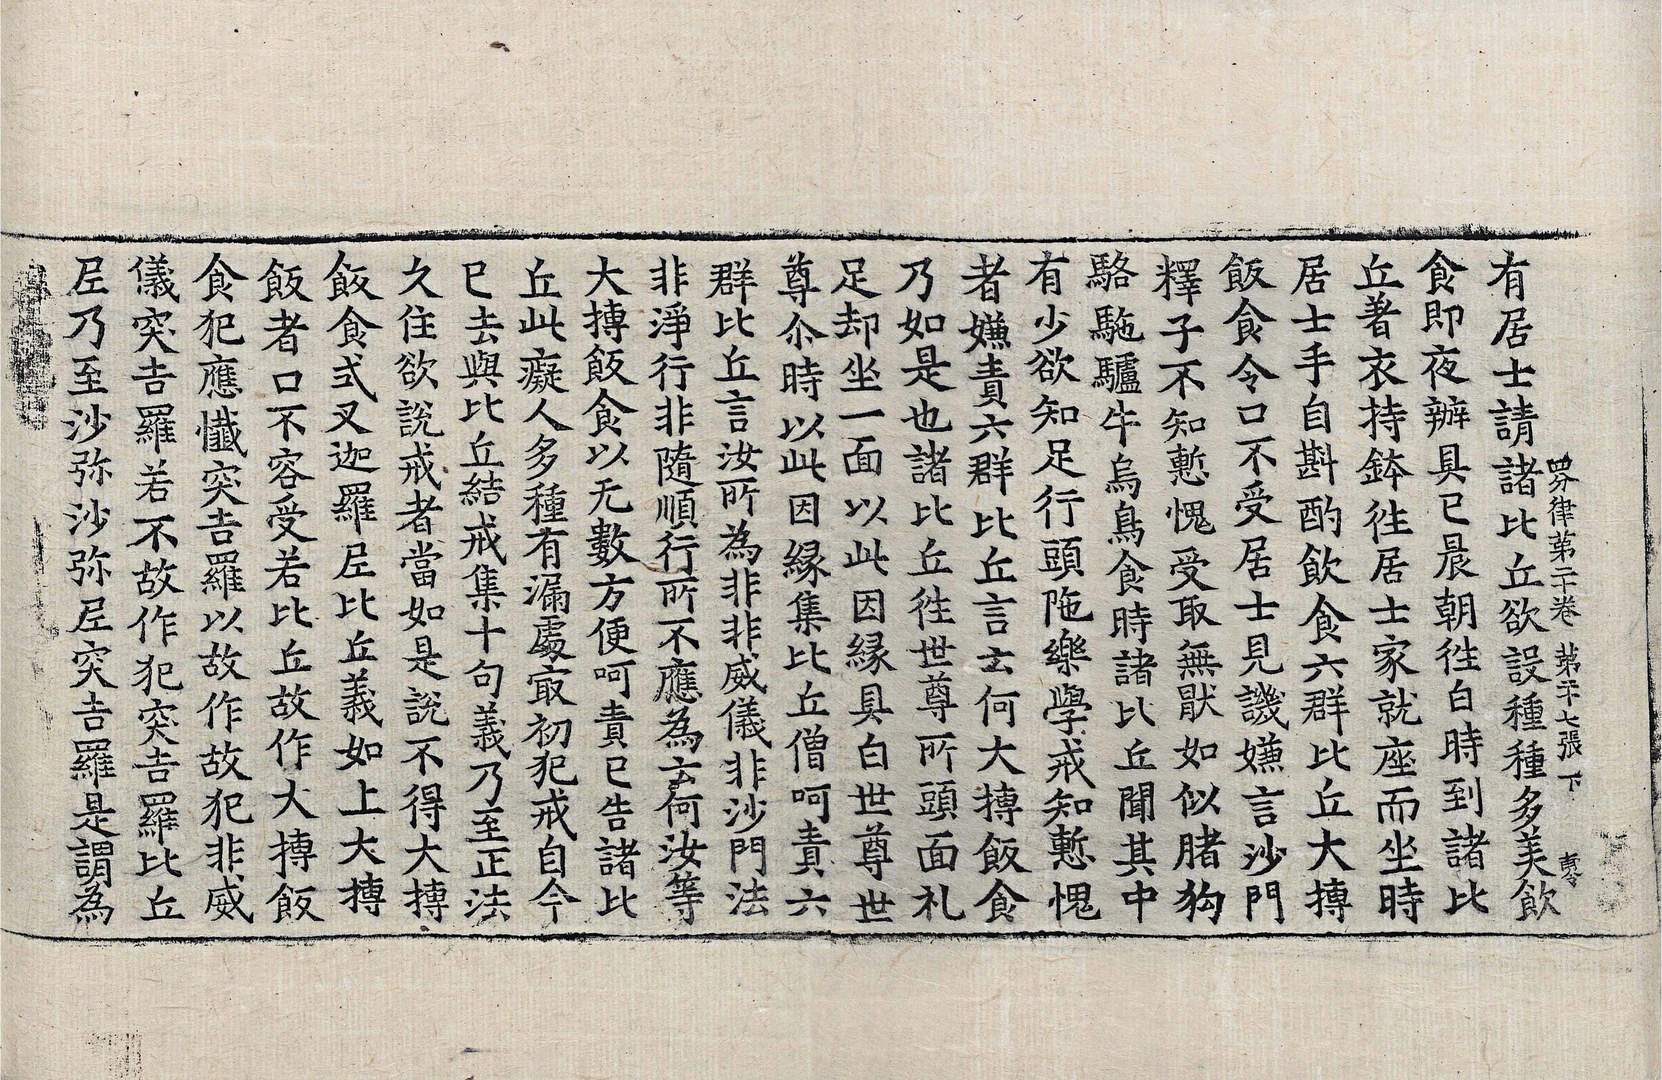 四分律第二十卷 第二十七張 下
有居士請諸比丘欲設種種多美飲
食即夜辦具已晨朝往白時到諸比
丘著衣持鉢往居士家就座而坐時
居士手自斟酌飲食六群比丘大摶
飯食令口不受居士見譏嫌言沙門
釋子不知慙愧受取無猒如似腊狗
駱駞驢牛烏鳥食時諸比丘聞其中
有少欲知足行頭陁樂學戒知慙愧
者嫌責六群比丘言云何大摶飯食
乃如是也諸比丘徃世尊所頭面礼
足却坐一面以此因緣具白世尊世
尊尒時以此因緣集比丘僧呵責六
群比丘言汝所為非非威儀非沙門法
非淨行非隨順行所不應為云何汝等
大摶飯食以无數方便呵責已告諸比
丘此癡人多種有漏處㝡初犯戒自今
已去與比丘結戒集十句義乃至正法
久住欲說戒者當如是說不得大摶
飯食式叉迦羅尼比丘義如上大摶
飯者口不容受若比丘故作大摶飯
食犯應懺突吉羅以故作故犯非威
儀突吉羅若不故作犯突吉羅比丘
尼乃至沙弥沙弥尼突吉羅是謂為